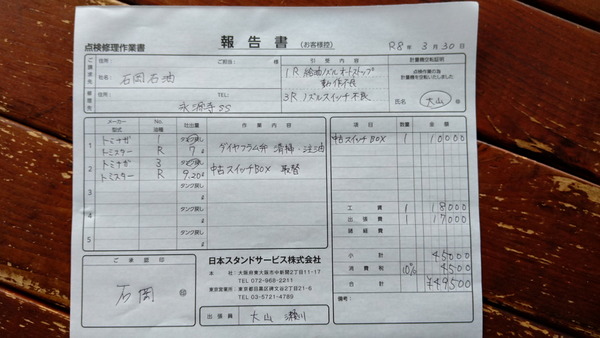 点検修理作業書
報告書
(お客様控)
R8年3月30日
ご請求先
住所:
ご担当:
様
社名:
石岡石油
整備先
住所:
TEL:
永源寺SS
引受内容
1R 給油ノズルオートストップ
動作不良
3R ノズルスイッチ不良
計量機空転証明
点検作業の為
計量機空転いたしました
氏名
大山
メーカー
型式
No.
油種
吐出量
作業内容
1
トミナガ 1 タンク戻し
トミスター R 7ℓ ダイヤフラム弁 清掃・注油
2
トミナガ 3 タンク戻し
トミスター R 9.20ℓ 中古スイッチBOX 取替
3
タンク戻し
4
タンク戻し
5
タンク戻し
項目 数量 金額
中古スイッチBOX 1 10000
工賃 18000
出張費 1 17000
諸経費
小計 45000
消費税 10% 4500
合計 ¥49500
備考:
ご承認印
石岡
印
日本スタンドサービス株式会社
本社:大阪府東大阪市中新開2丁目11-17
TEL 072-968-2211
東京営業所:東京都目黒区碑文谷2丁目21-6
TEL 03-5721-4789
出張員
大山